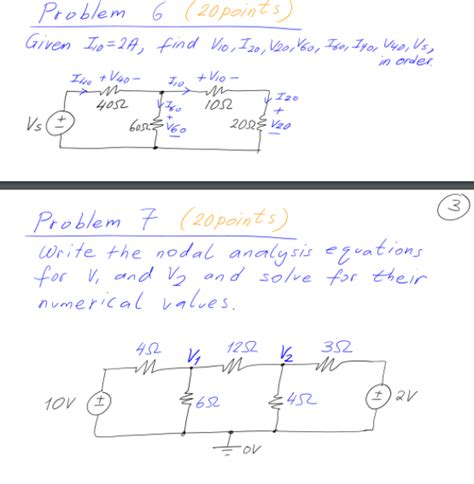 Problem 6 (20 points)
Given I10=2A, find V10, I20, V20, V60, I60, I40, V40, Vs,
in order.
I40 + V40 - I10 + V10 -
40Ω I60 10Ω I20
+ +
Vs 60Ω V60 20Ω V20
- -
3
Problem 7 (20 points)
Write the nodal analysis equations
for V1 and V2 and solve for their
numerical values.
4Ω V1 12Ω V2 3Ω
10V 6Ω 4Ω 2V
0V